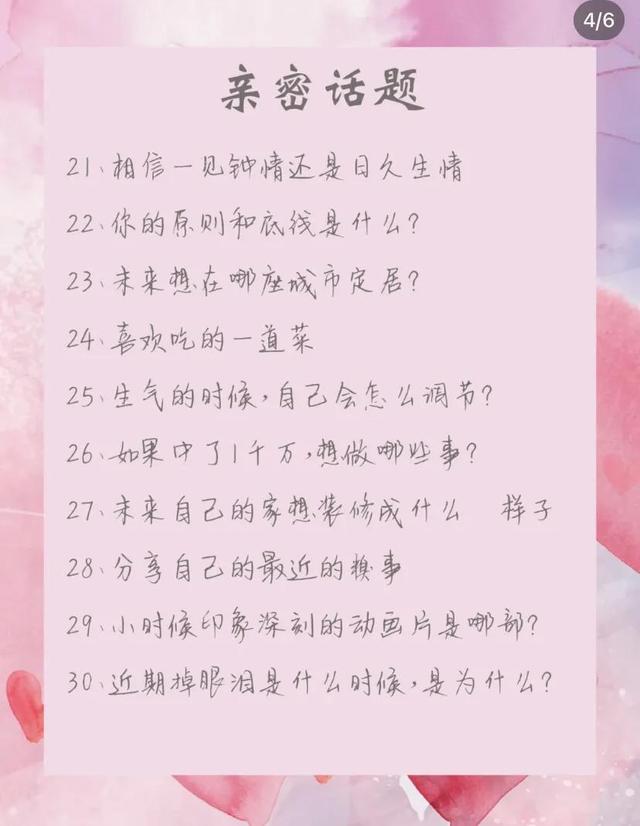 4/6
亲密话题
21、相信一见钟情还是日久生情
22、你的原则和底线是什么?
23、未来想在哪座城市定居?
24、喜欢吃的一道菜
25、生气的时候,自己会怎么调节?
26、如果中了1千万,想做哪些事?
27、未来自己的家想装修成什么 样子
28、分享自己的最近的糗事
29、小时候印象深刻的动画片是哪部?
30、近期掉眼泪是什么时候,是为什么?